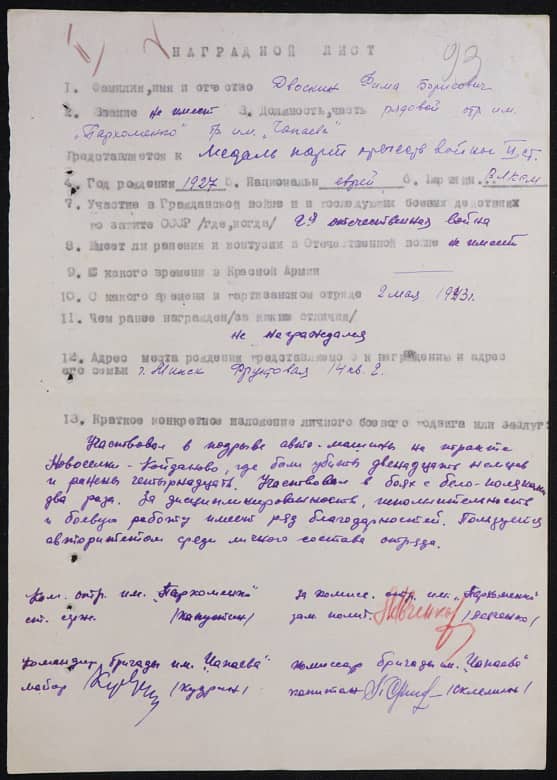 93
НАГРАДНОЙ ЛИСТ
1. Фамилия,имя и отчество Двоскин Фима Борисович
2. Звание не имеет 3. Должность,часть рядовой отр. им.
"Пархоменко" бр. им. "Чапаева"
Представляется к медаль парт. отечеств войны II ст.
4. Год рождения 1927 5. Национальн еврей 6. Партийн. ВЛКСМ
7. Участие в Гражданской войне и в последующих боевых действиях
по защите СССР /где,когда/ отечественная война
8. Имеет ли ранения и контузии в Отечественной войне не имеет
9. С какого времени в Красной Армии
10. С какого времени в партизанском отряде 2 мая 1943г.
11. Чем ранее награжден/за какие отличия/
не награждался
12. Адрес места рождения представляемого к награждению и адрес
его семьи г. Минск Фруктовая 14 кв. 2.
13. Краткое конкретное изложение личного боевого подвига или заслуг:
Участвовал в подрыве авто-машины на тракте
Новоселки - Койданово, где были убиты двенадцать немцев
и ранены четырнадцать. Участвовал в боях с бело-поляками
два раза. За дисциплинированность, исполнительность
и боевую работу имеет ряд благодарностей. Пользуется
авторитетом среди личного состава отряда.
Ком. отр. им. "Пархоменко" за комисс. отр. им. "Пархоменко"
ст. серж. /Капустин/ зам. полит. /Левченко/
Командир бригады им. "Чапаева" комиссар бригады им. "Чапаева"
майор /Кудрин/ капитан